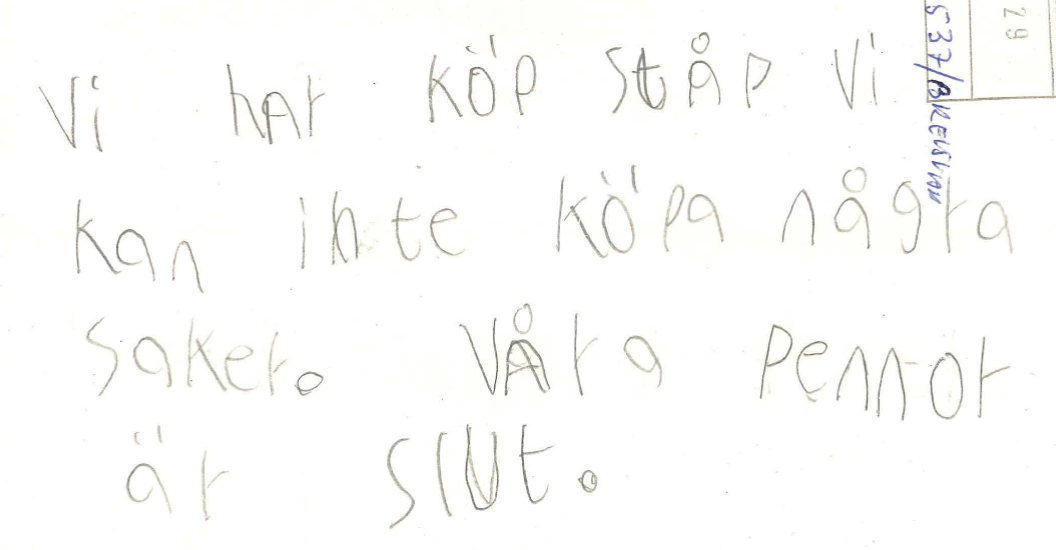 Vi har köp ståp Vi
kan inte köpa några
saker. Våra pennor
är slut.
29